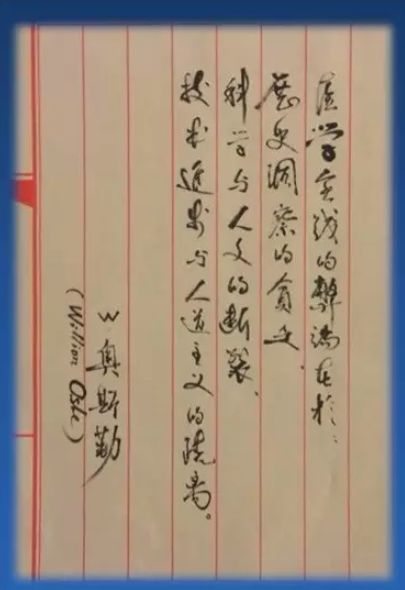 医学实践的弊端在于：
历史洞察的贫乏，
科学与人文的断裂，
技术进步与人道主义的疏离。
W·奥斯勒
(Willion Osle)